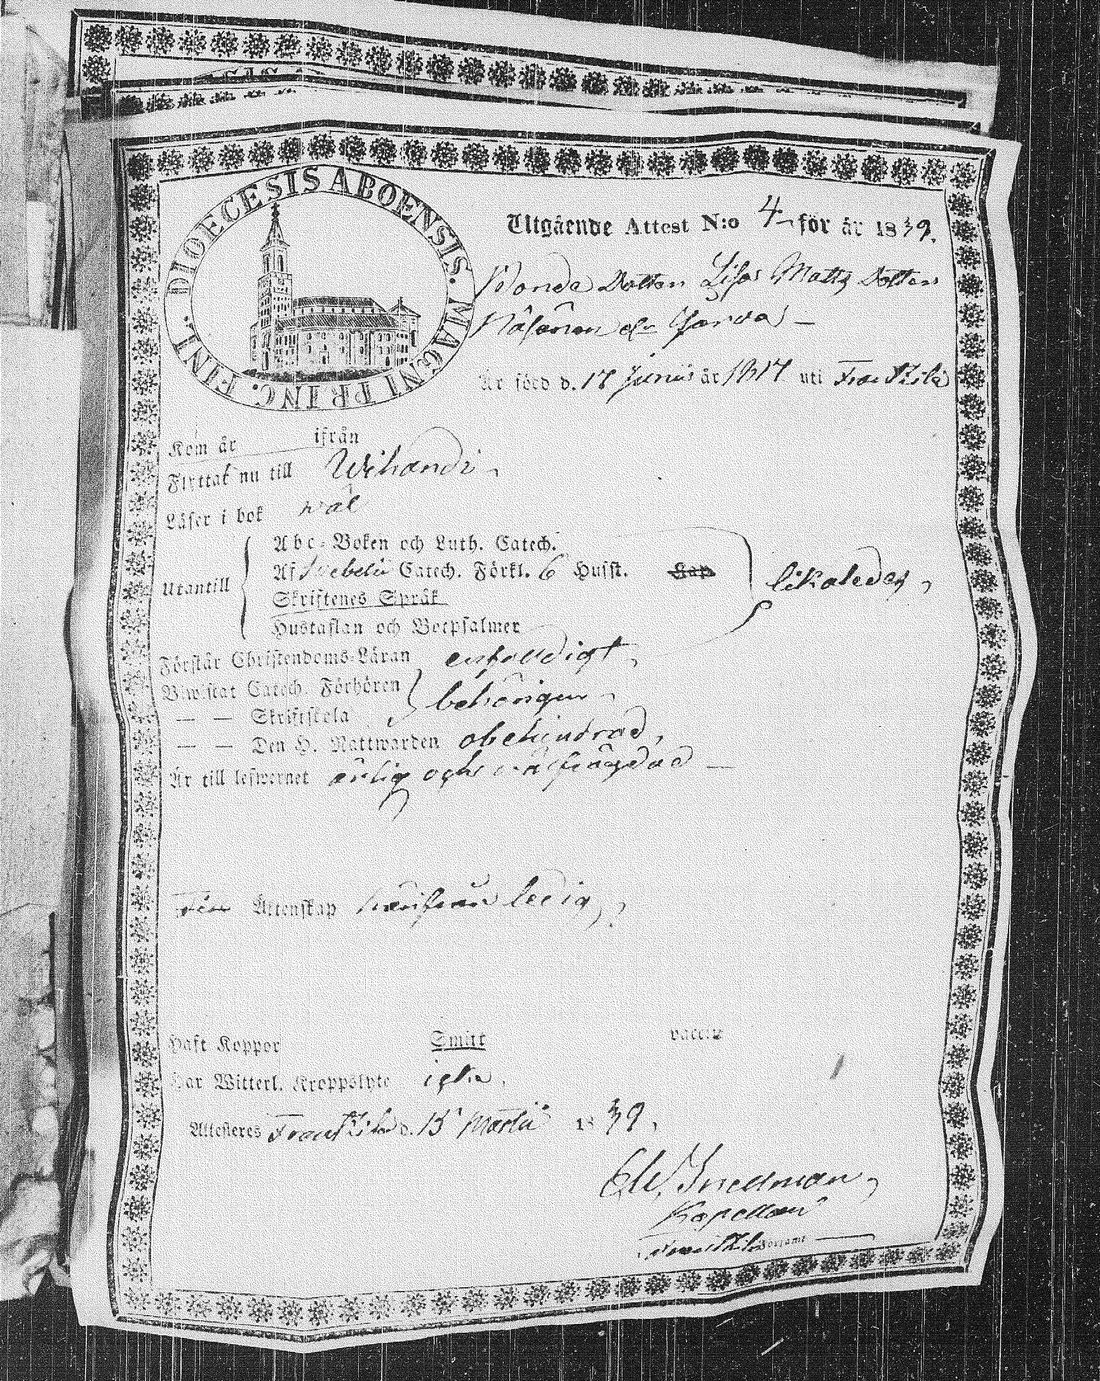 DIOECESIS ABOENSIS. MAGNI PRINC. FINL.
Utgående Attest N:o 4 för år 1839.
Bonde Dottren Lisa Matts Dotter
Näsänen
Är född d. 17 Junii år 1817 uti Frantzila
Kom år ifrån
Flyttat nu till Wihandi
Läser i bok wäl
Utantill
Abc-Boken och Luth. Catech.
Af Swebelii Catech. Förkl. 6 Husst. Cap
likaledes,
Skriftenes Språk
Hustaflan och Botpsalmer
Förstår Christendoms-Läran enfaldigt,
Biwistat Catech. Förhören
behörigen
— — Skriftskola
— — Den H. Nattwarden obehindrad,
Är till lefwernet ärlig och wälfrägdad —
Till Äktenskap härifrån ledig,
Haft Koppor Smitt vaccin
Har Witterl. Kroppslyte icke,
Attesteres Frantzila d. 15 Martii 1839,
Kapellan
Frantzila Församl